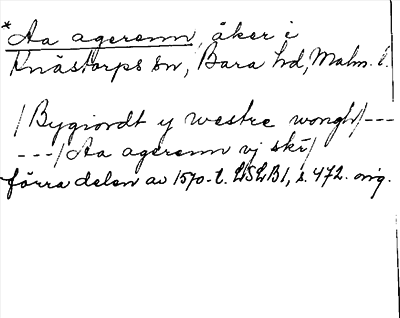 *Aa agerenn, åker i
Knästorps sn, Bara hd, Malm. l.
/Bygiordt y westre wongh/---
---/Aa agerenn vj skr/
förra delen av 1570-t. LSLB1, s. 472. orig.